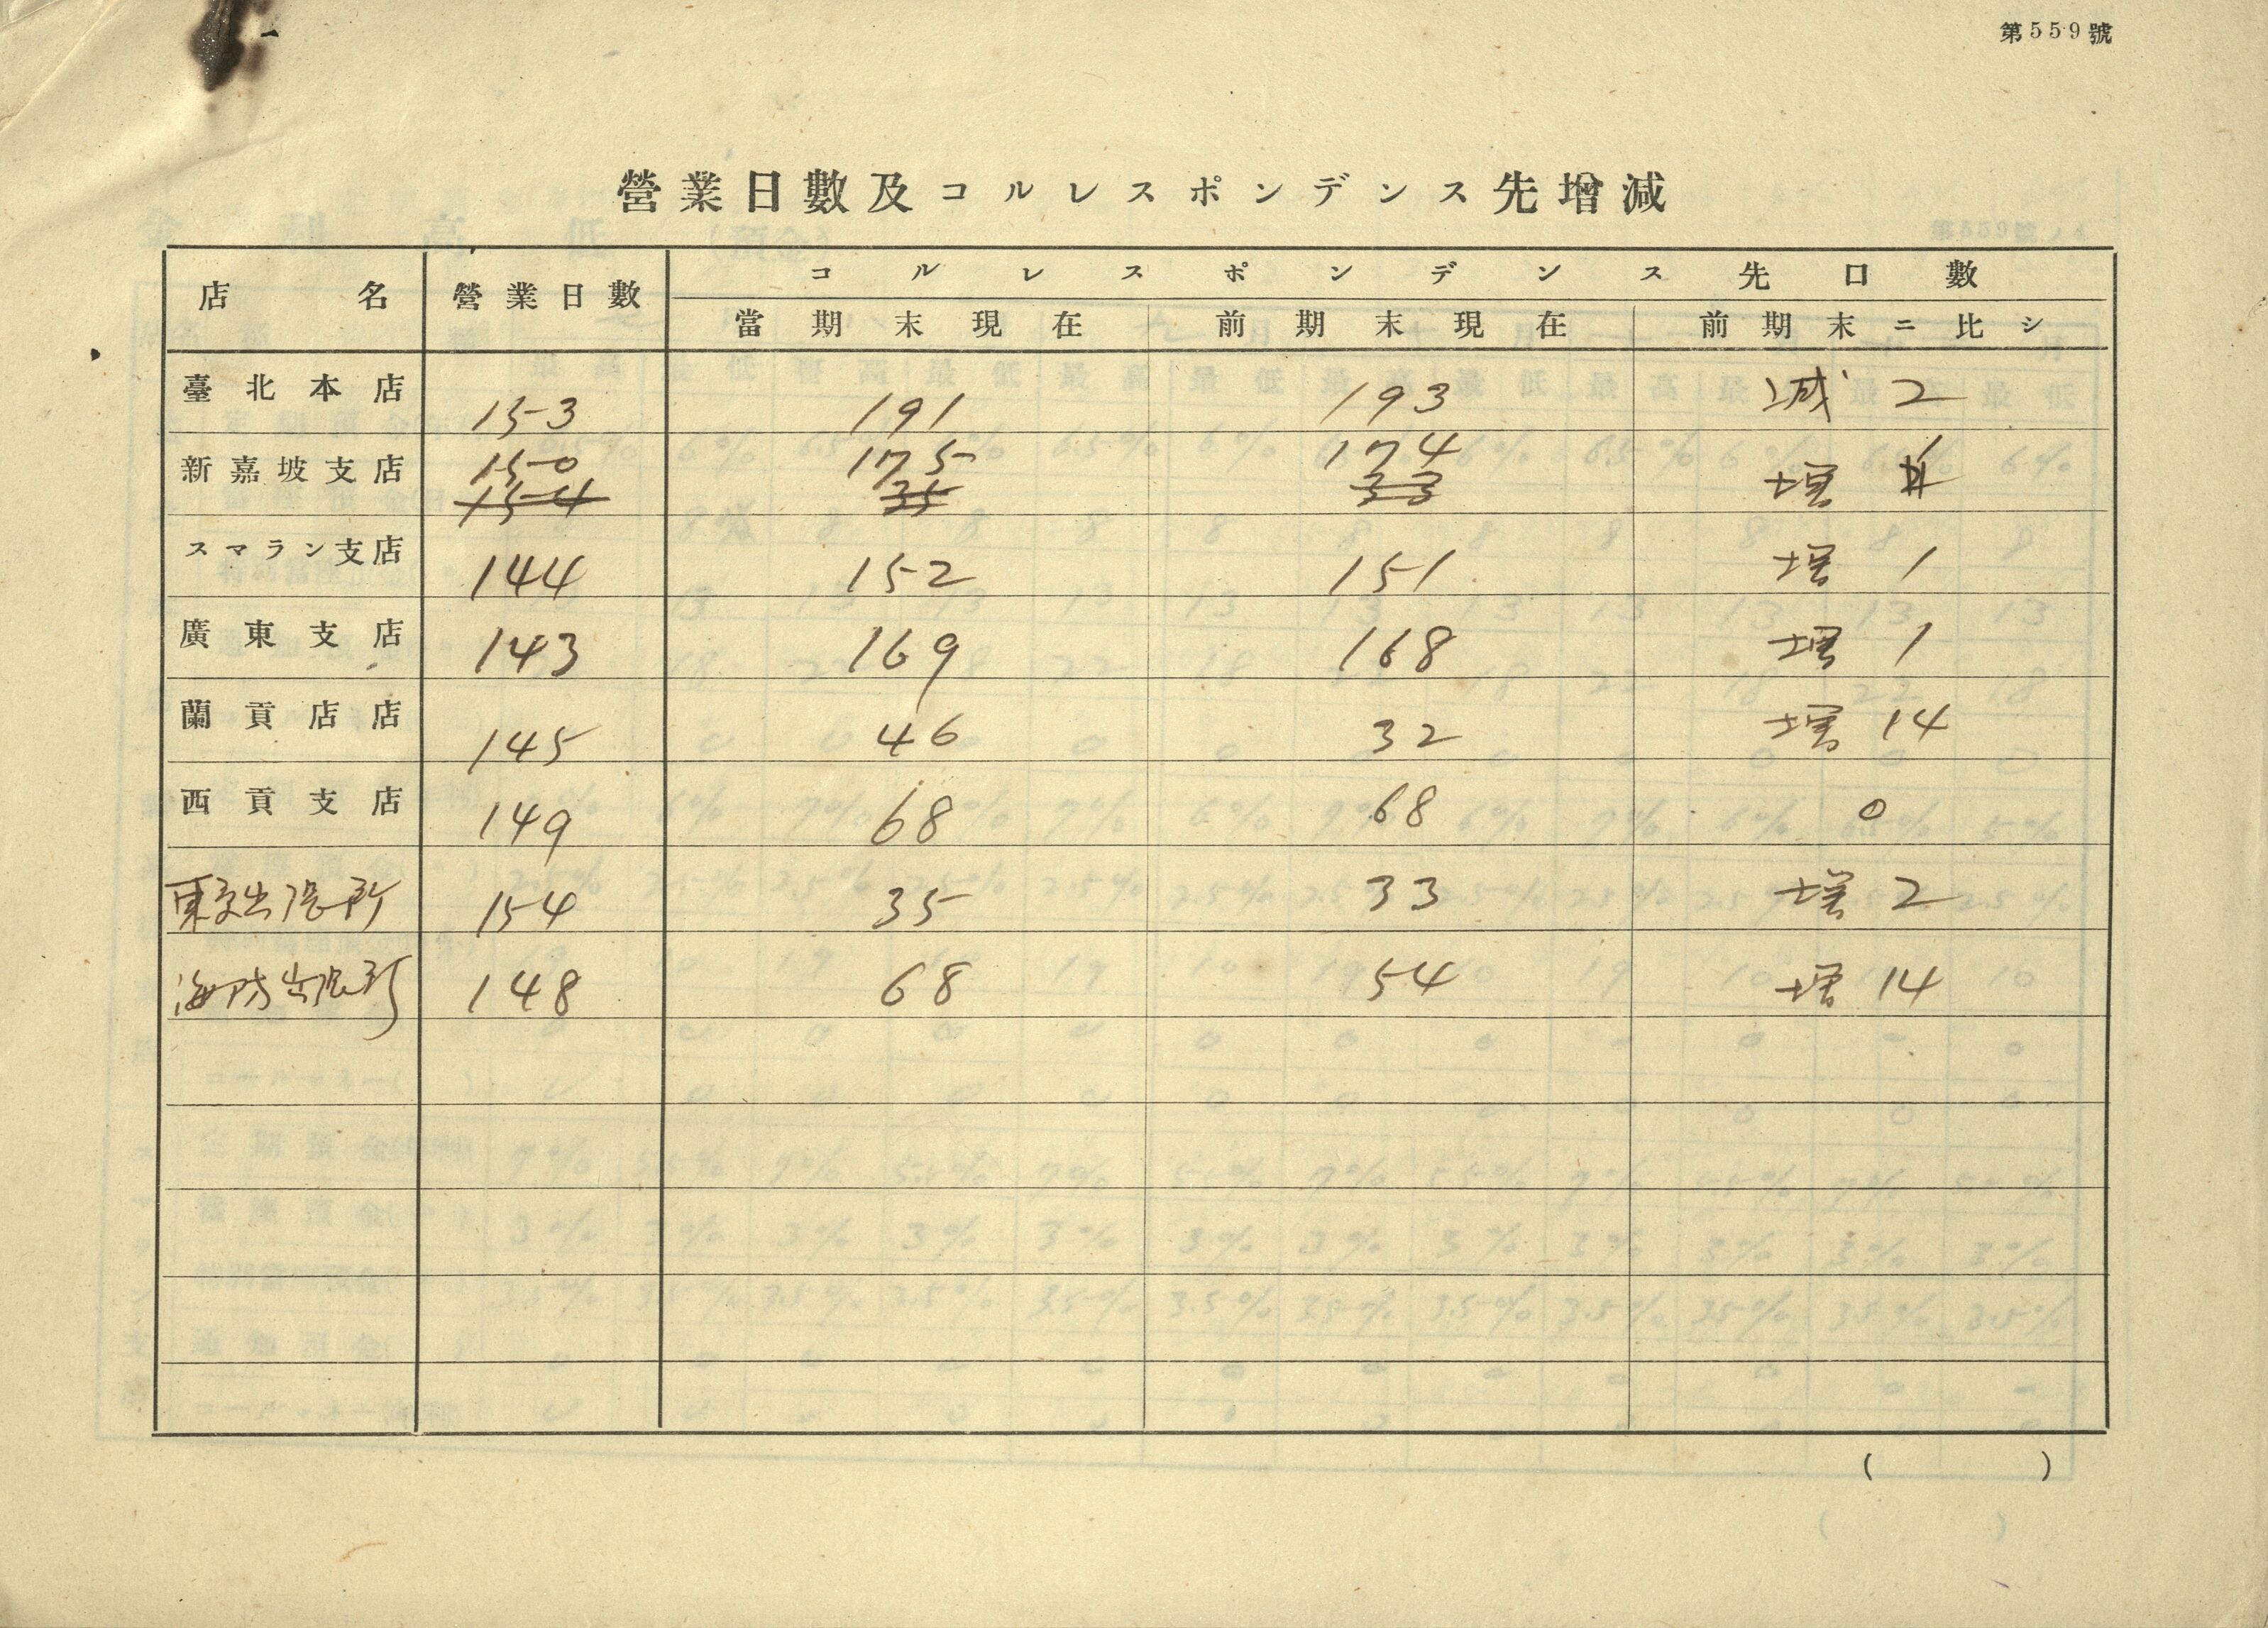 第559號
營業日數及コルレスポンデンス先增減
店名 營業日數 コルレスポンデンス先口數
當期末現在 前期末現在 前期末ニ比シ
臺北本店 153 191 193 減 2
新嘉坡支店 150 175 174 增 1
154 35 33
スマラン支店 144 152 151 增 1
廣東支店 143 169 168 增 1
蘭貢店店 145 46 32 增 14
西貢支店 149 68 68 0
東京出張所 154 35 33 增 2
海防出張所 148 68 54 增 14
( )